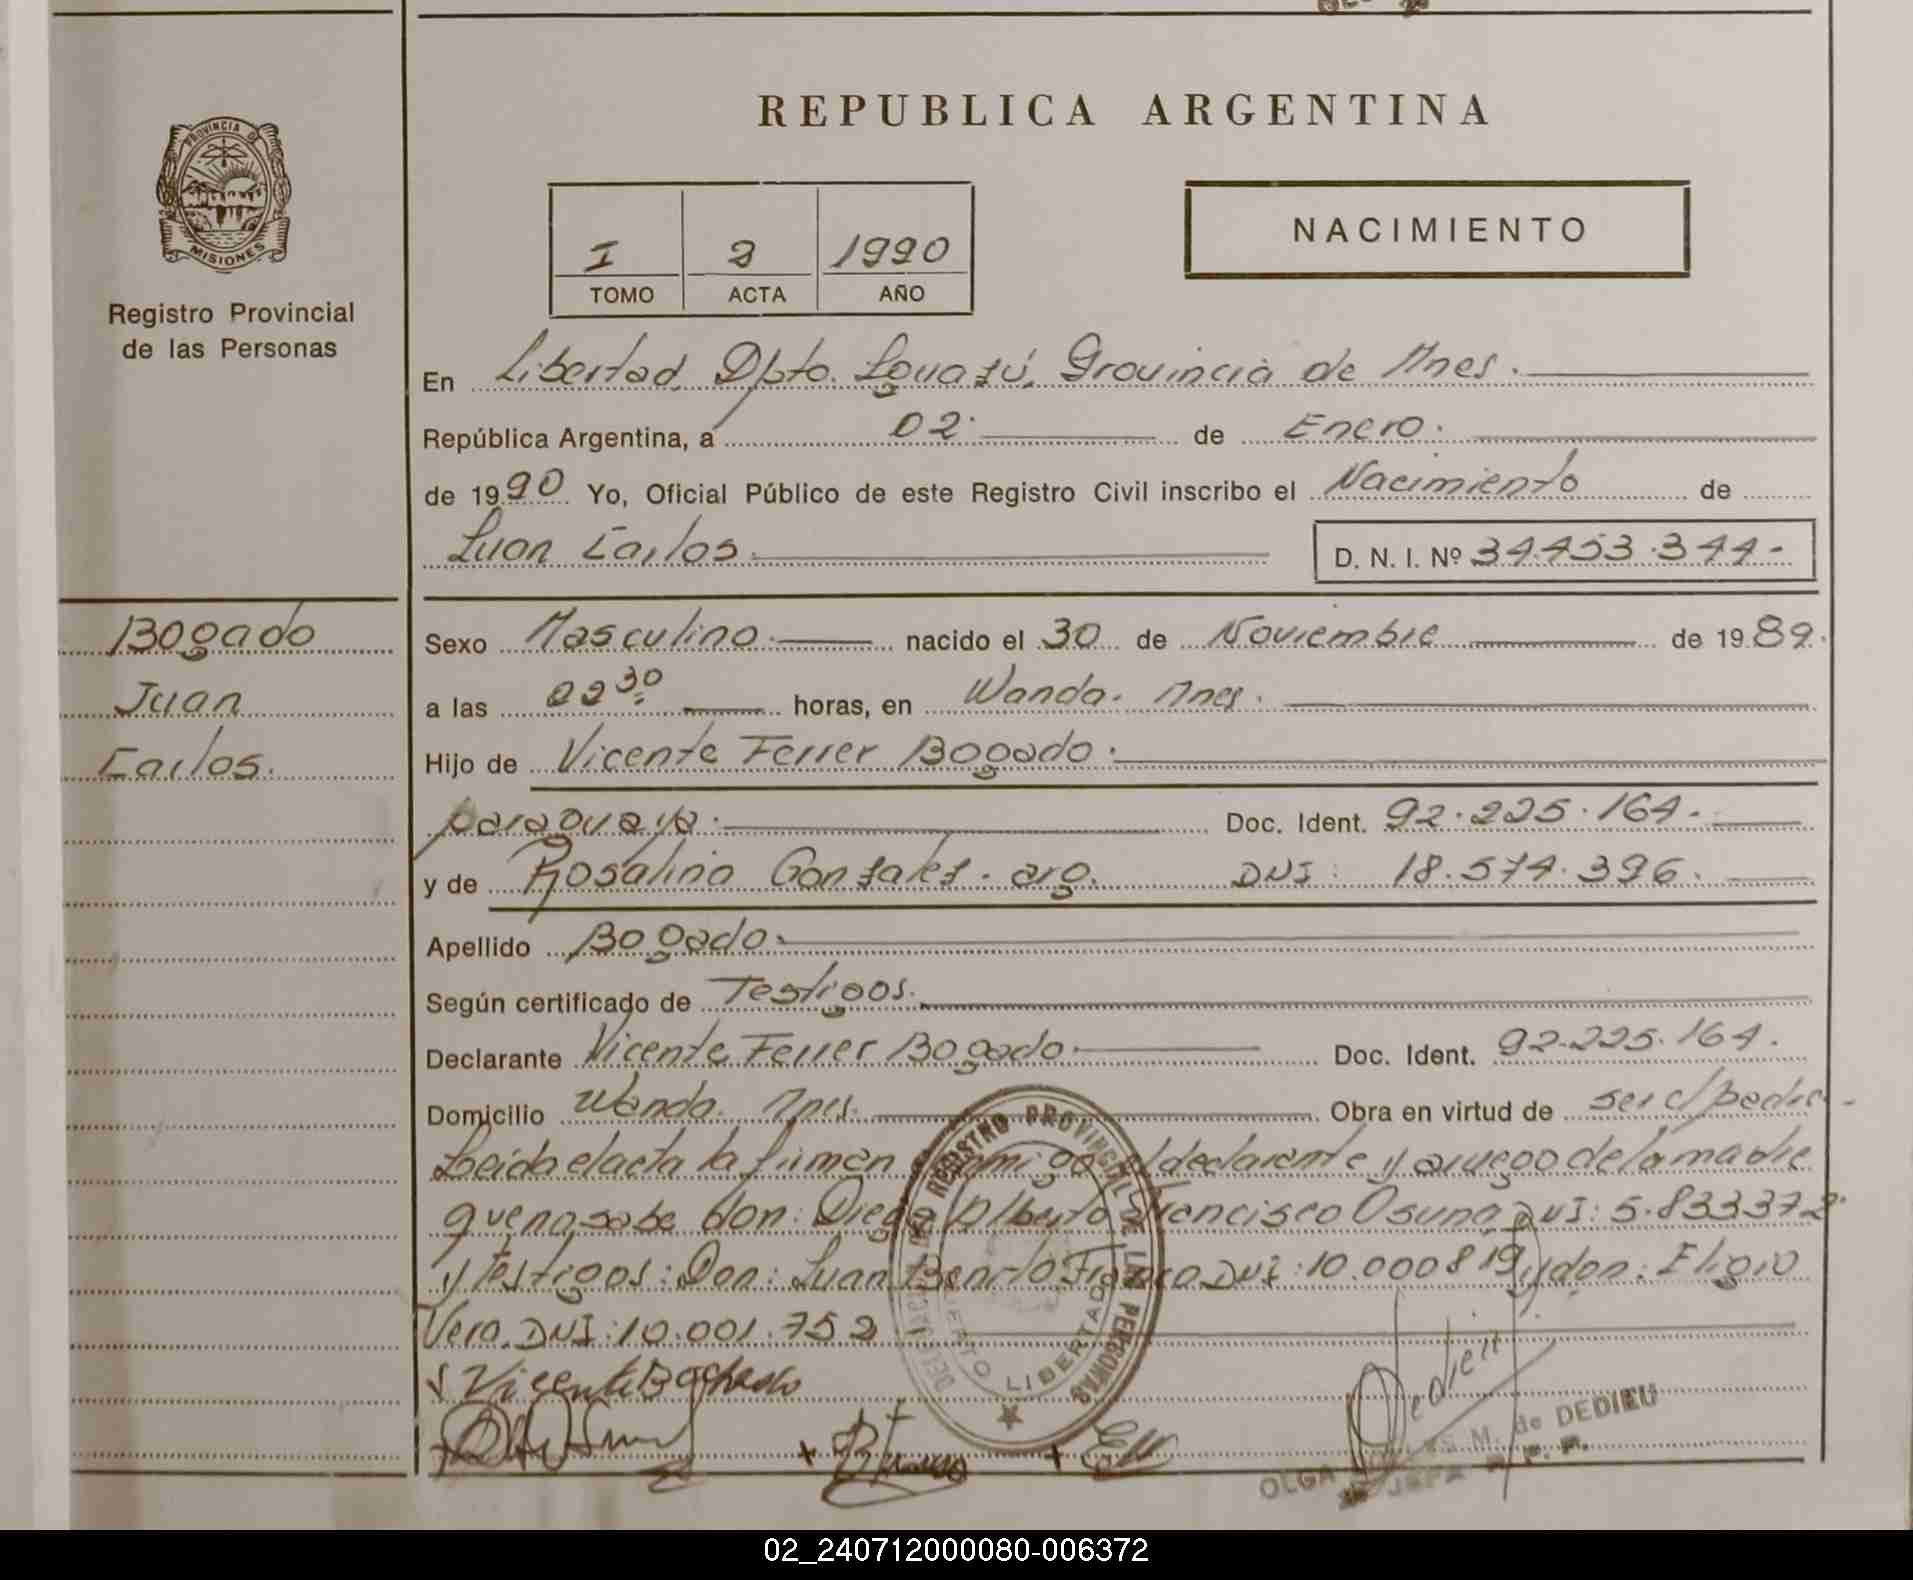 REPUBLICA ARGENTINA
PROVINCIA DE
MISIONES
Registro Provincial
de las Personas
NACIMIENTO
I 2 1990
TOMO ACTA AÑO
En Libertad, Dpto. Iguazú, Provincia de Mnes.
República Argentina, a 02 de Enero.
de 1990 Yo, Oficial Público de este Registro Civil inscribo el Nacimiento de
Juan Carlos. D. N. I. Nº 34.453.344-
Bogado
Juan
Carlos.
Sexo Masculino. nacido el 30 de Noviembre de 1989.
a las 22 30 horas, en Wanda. Mnes.
Hijo de Vicente Ferrer Bogado.
paraguaya. Doc. Ident. 92.225.164.
y de Rosalina Gonzalez. arg. DNI: 18.574.396.
Apellido Bogado.
Según certificado de Testigos.
Declarante Vicente Ferrer Bogado. Doc. Ident. 92.225.164.
Domicilio Wanda. Mnes. Obra en virtud de ser el padre.
Leída el acta la firman conmigo el declarante y a ruego de la madre
que no sabe don: Diego Alberto Francisco Osuna DNI: 5.833372.
y testigos: Don: Juan Benito Franco DNI: 10.000819 y don: Eligio
Vera. DNI: 10.001.752
Vicente Bogado
REGISTRO PROVINCIAL DE LAS PERSONAS
PUERTO LIBERTAD
Dedieu
OLGA M. de DEDIEU
JEFA R. P. P.
02_240712000080-006372